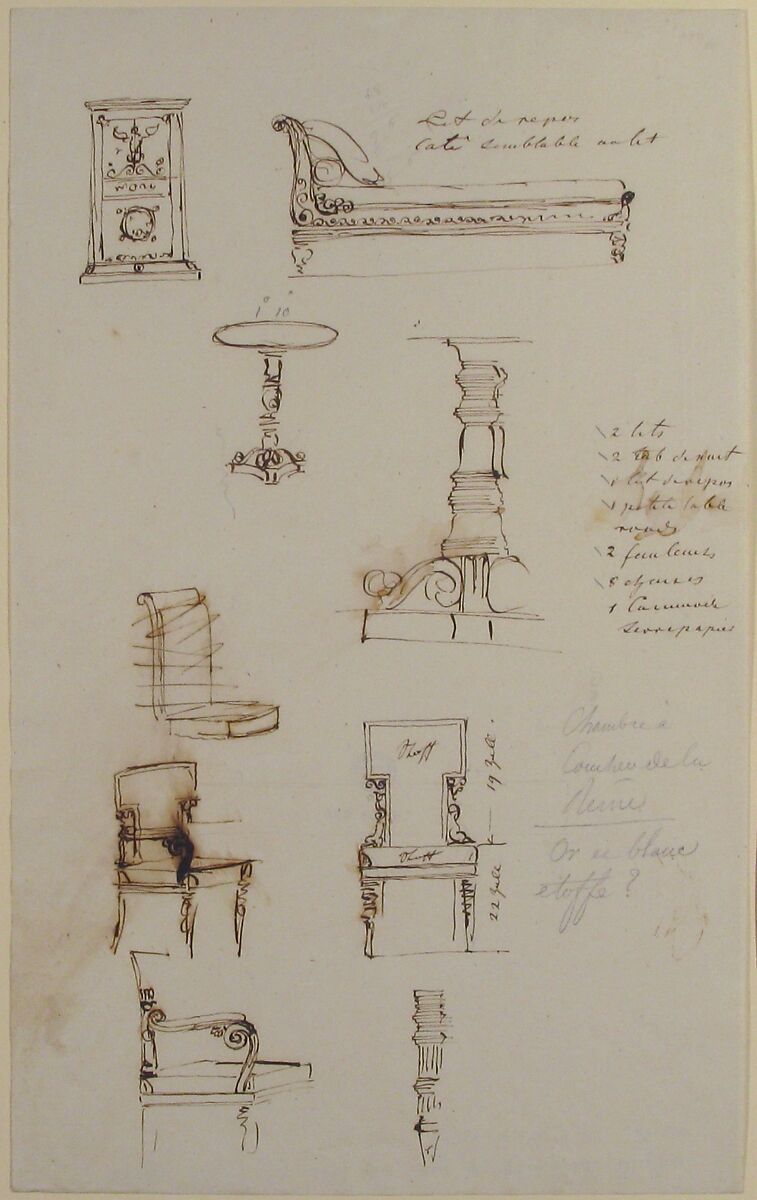 Lit de repos
Coté semblable au lit
1° 10"
2 lits
2 tab de nuit
1 lit de repos
1 petite table
ronde
2 fauteuils
8 chaises
1
serre papier
Stoff
19 Zolle
Stoff
22 Zolle
Chambre à
Coucher de la
Reine
Or et blanc
étoffe ?